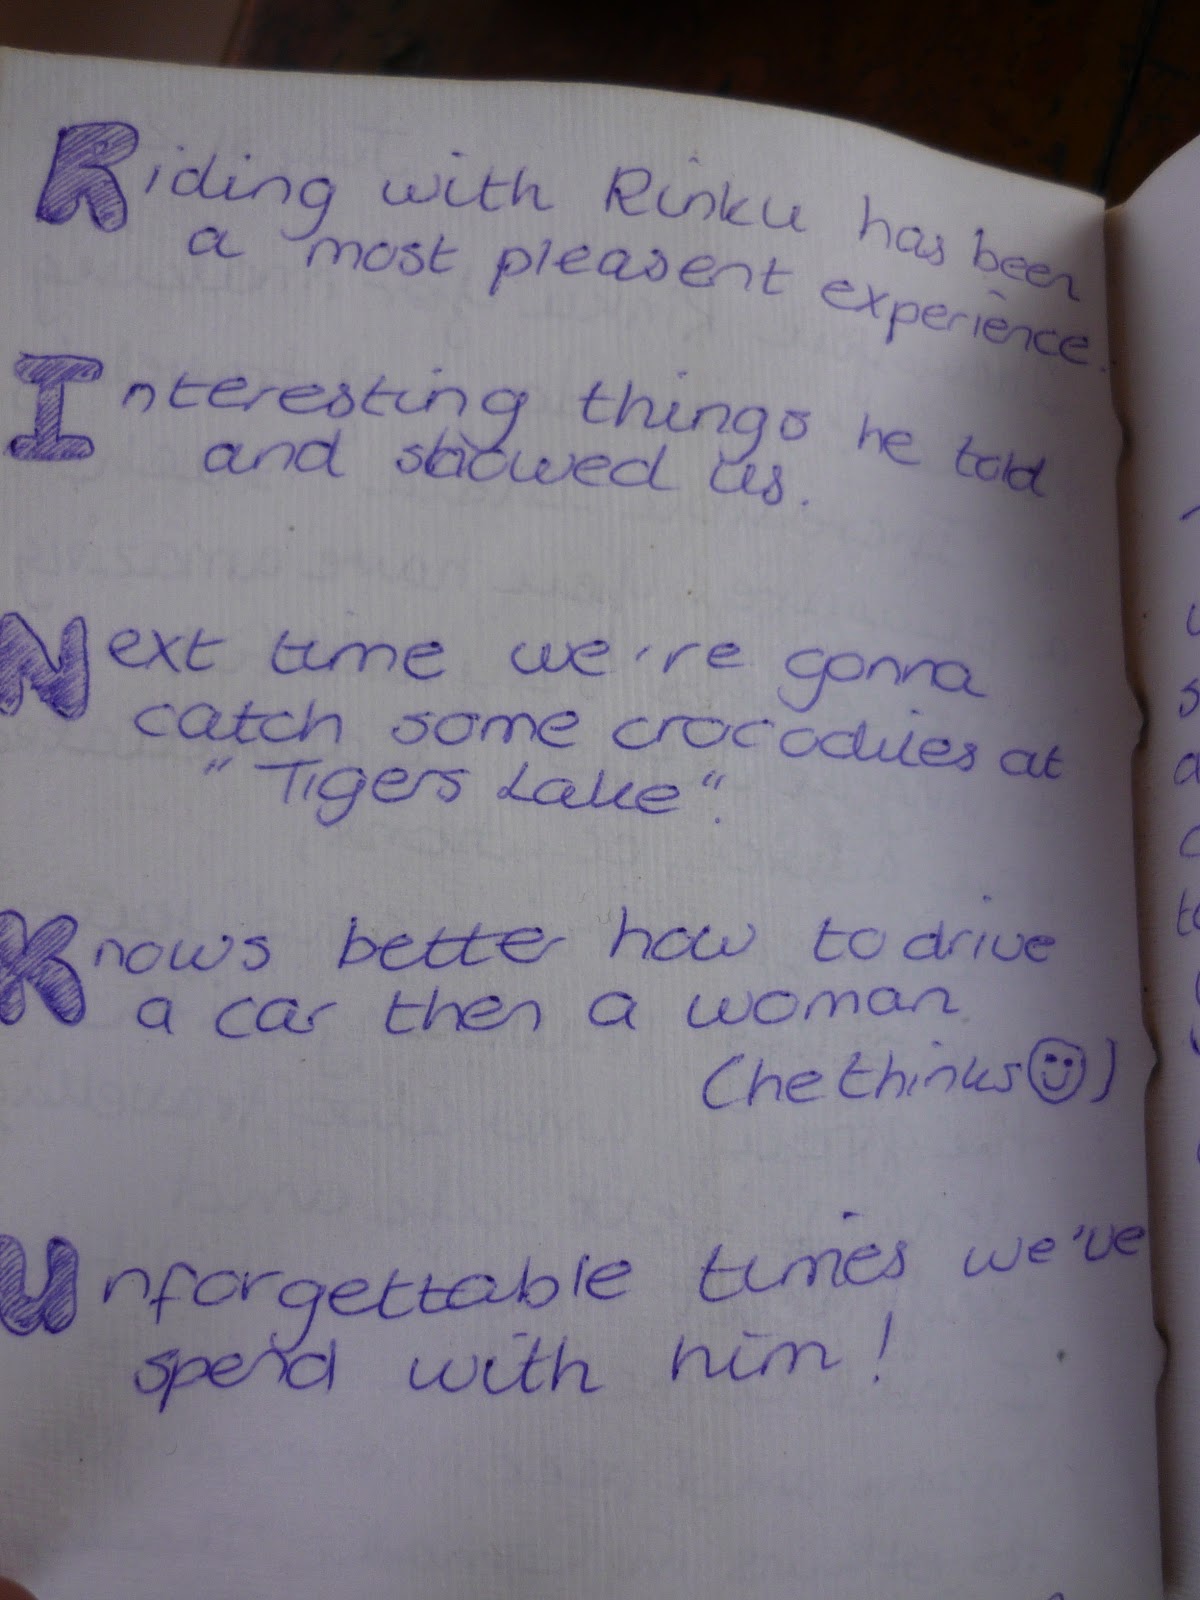 Riding with Rinku has been
a most pleasent experience.
Interesting things he told
and showed us.
Next time we're gonna
catch some crocodiles at
"Tigers Lake".
Knows better how to drive
a car then a woman
(he thinks☺)
Unforgettable times we've
spend with him!